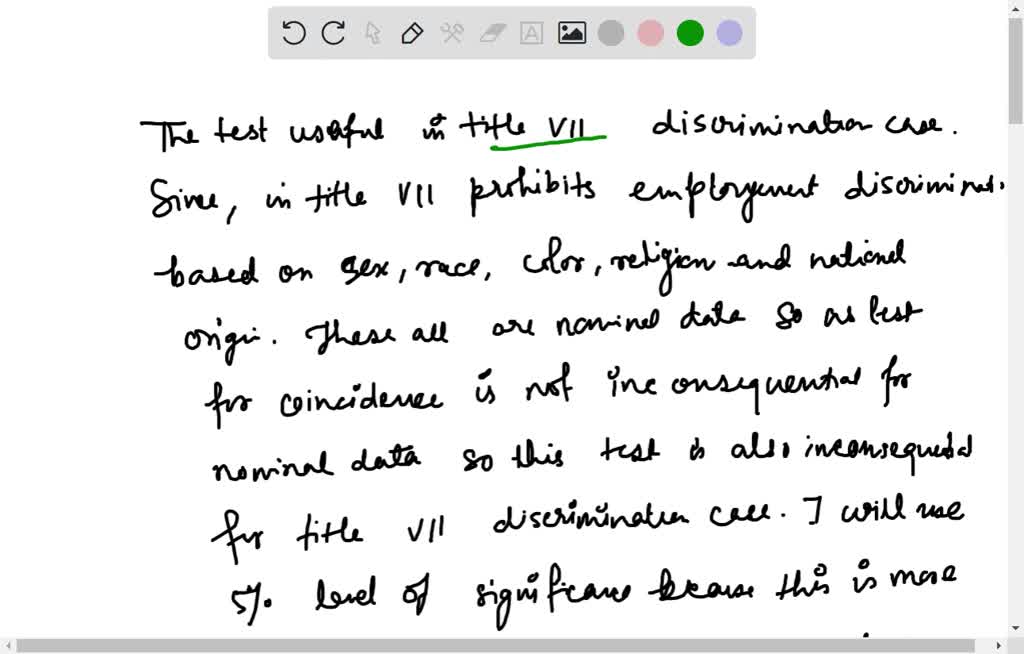 The test useful in title VII discrimination case.
Since, in title VII prohibits employment discriminati
based on sex, race, color, religion and national
origin. These all are nominal data so as test
for coincidence is not inconsequential for
nominal data so this test is also inconsequential
for title VII discrimination case. I will use
5% level of significance because this is more